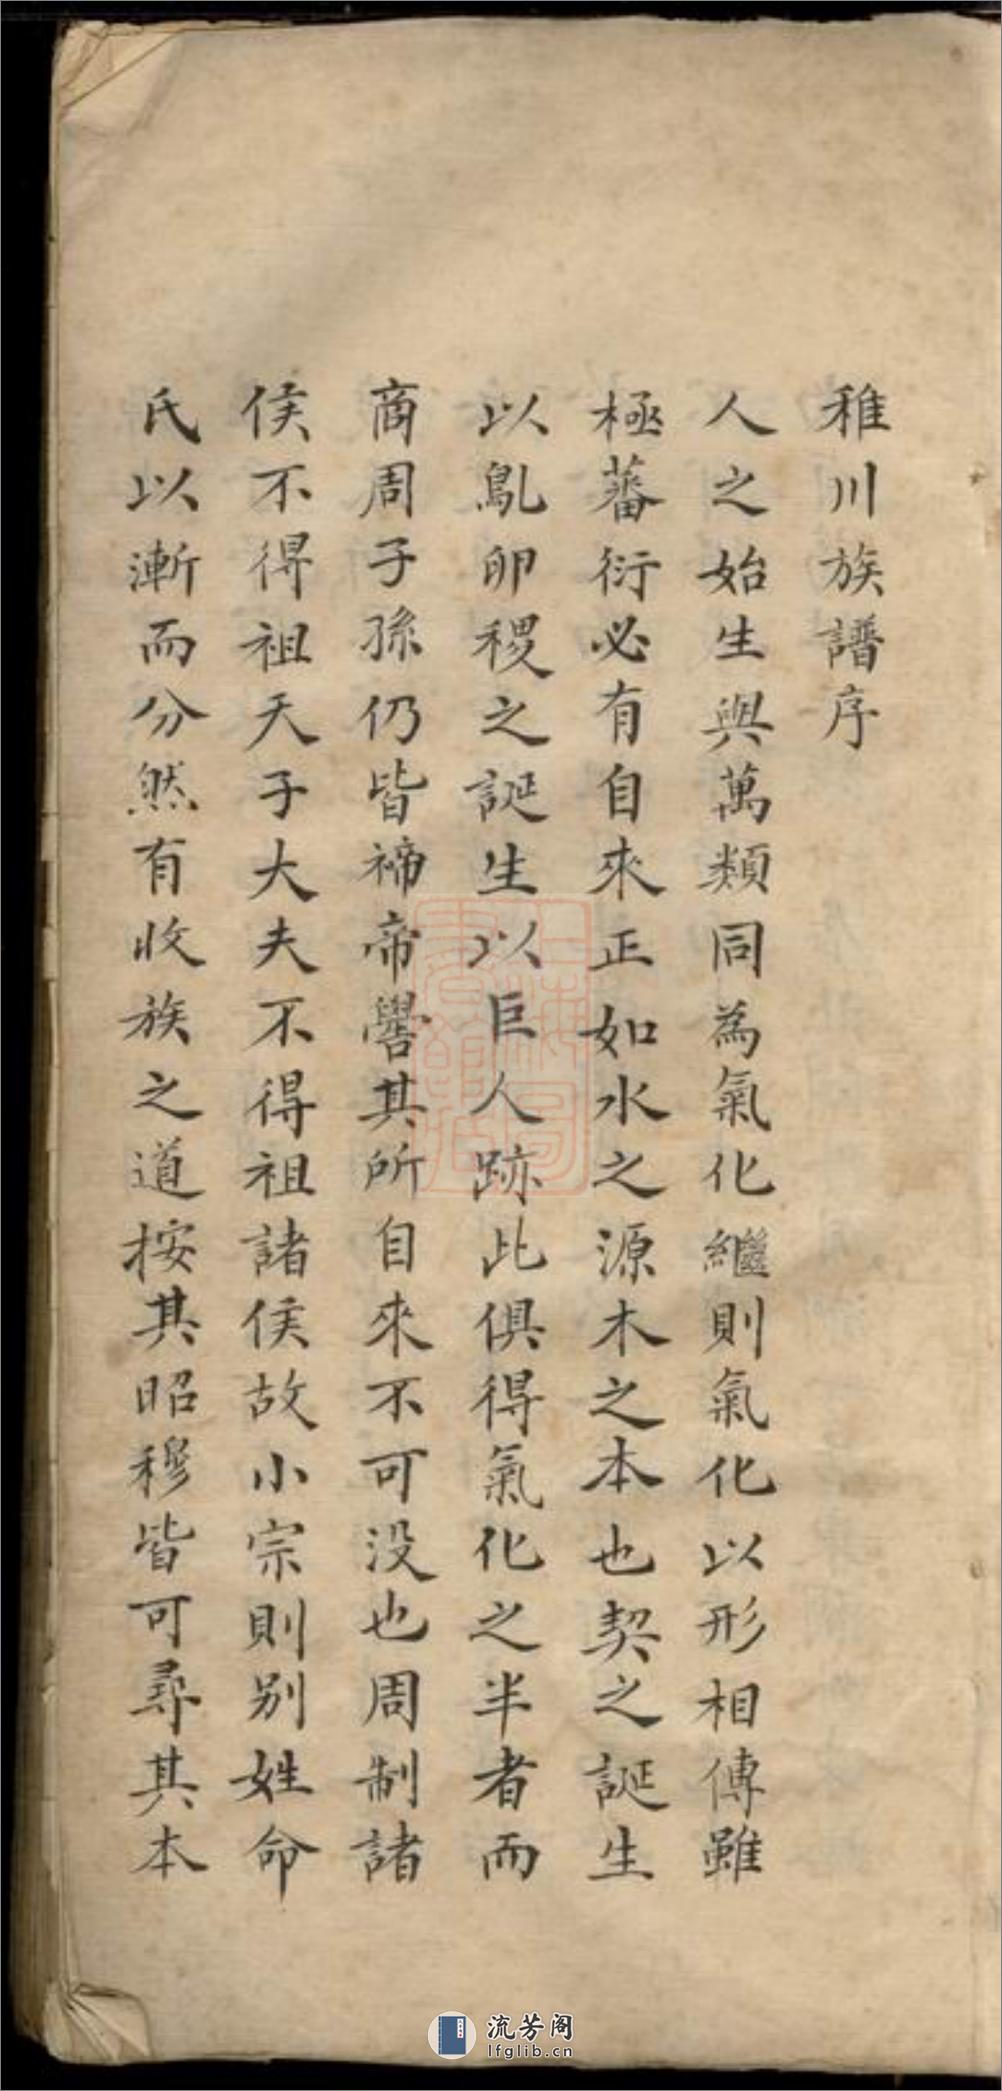 稚川族譜序
人之始生與萬類同為氣化繼則氣化以形相傳雖
極蕃衍必有自來正如水之源木之本也契之誕生
以鳦卵稷之誕生以巨人跡此俱得氣化之半者而
商周子孫仍皆禘帝嚳其所自來不可没也周制諸
侯不得祖天子大夫不得祖諸侯故小宗則別姓命
氏以漸而分然有收族之道按其昭穆皆可尋其本
流芳阁
lfglib.cn